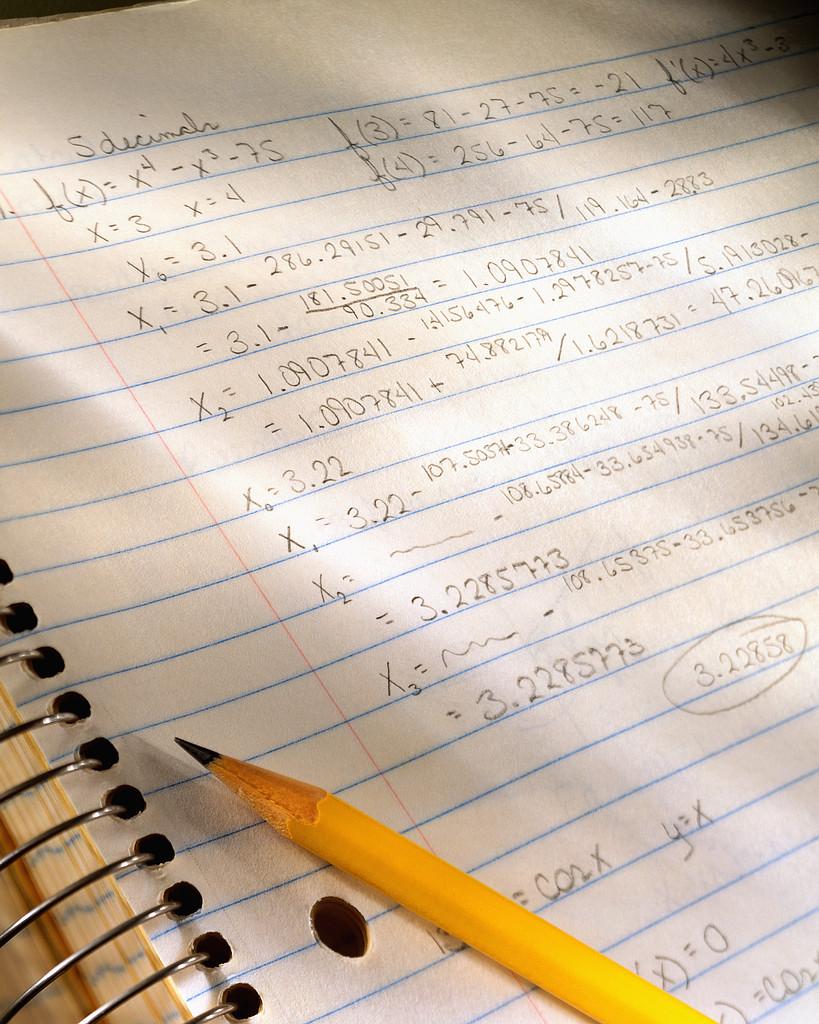 5 decimals
1. f(x) = x⁴ - x³ - 75 f(3) = 81 - 27 - 75 = -21 f'(x) = 4x³ - 3
x = 3 x = 4 f(4) = 256 - 64 - 75 = 117
x₀ = 3.1
x₁ = 3.1 - 286.29151 - 29.791 - 75 / 119.164 - 28.83
= 3.1 - 181.50051 / 90.334 = 1.0907841
x₂ = 1.0907841 - 1.4156476 - 1.2978257 - 75 / 5.1913028 -
= 1.0907841 + 74.882179 / 1.6218731 = 47.260967
x₀ = 3.22
x₁ = 3.22 - 107.5057 - 33.386248 - 75 / 133.54498 -
x₂ = - 108.65884 - 33.654938 - 75 / 134.619
= 3.2285773
x₃ = - 108.65375 - 33.653756 -
= 3.2285773 3.22858
= cos x y = x
(x) = 0
) = cos